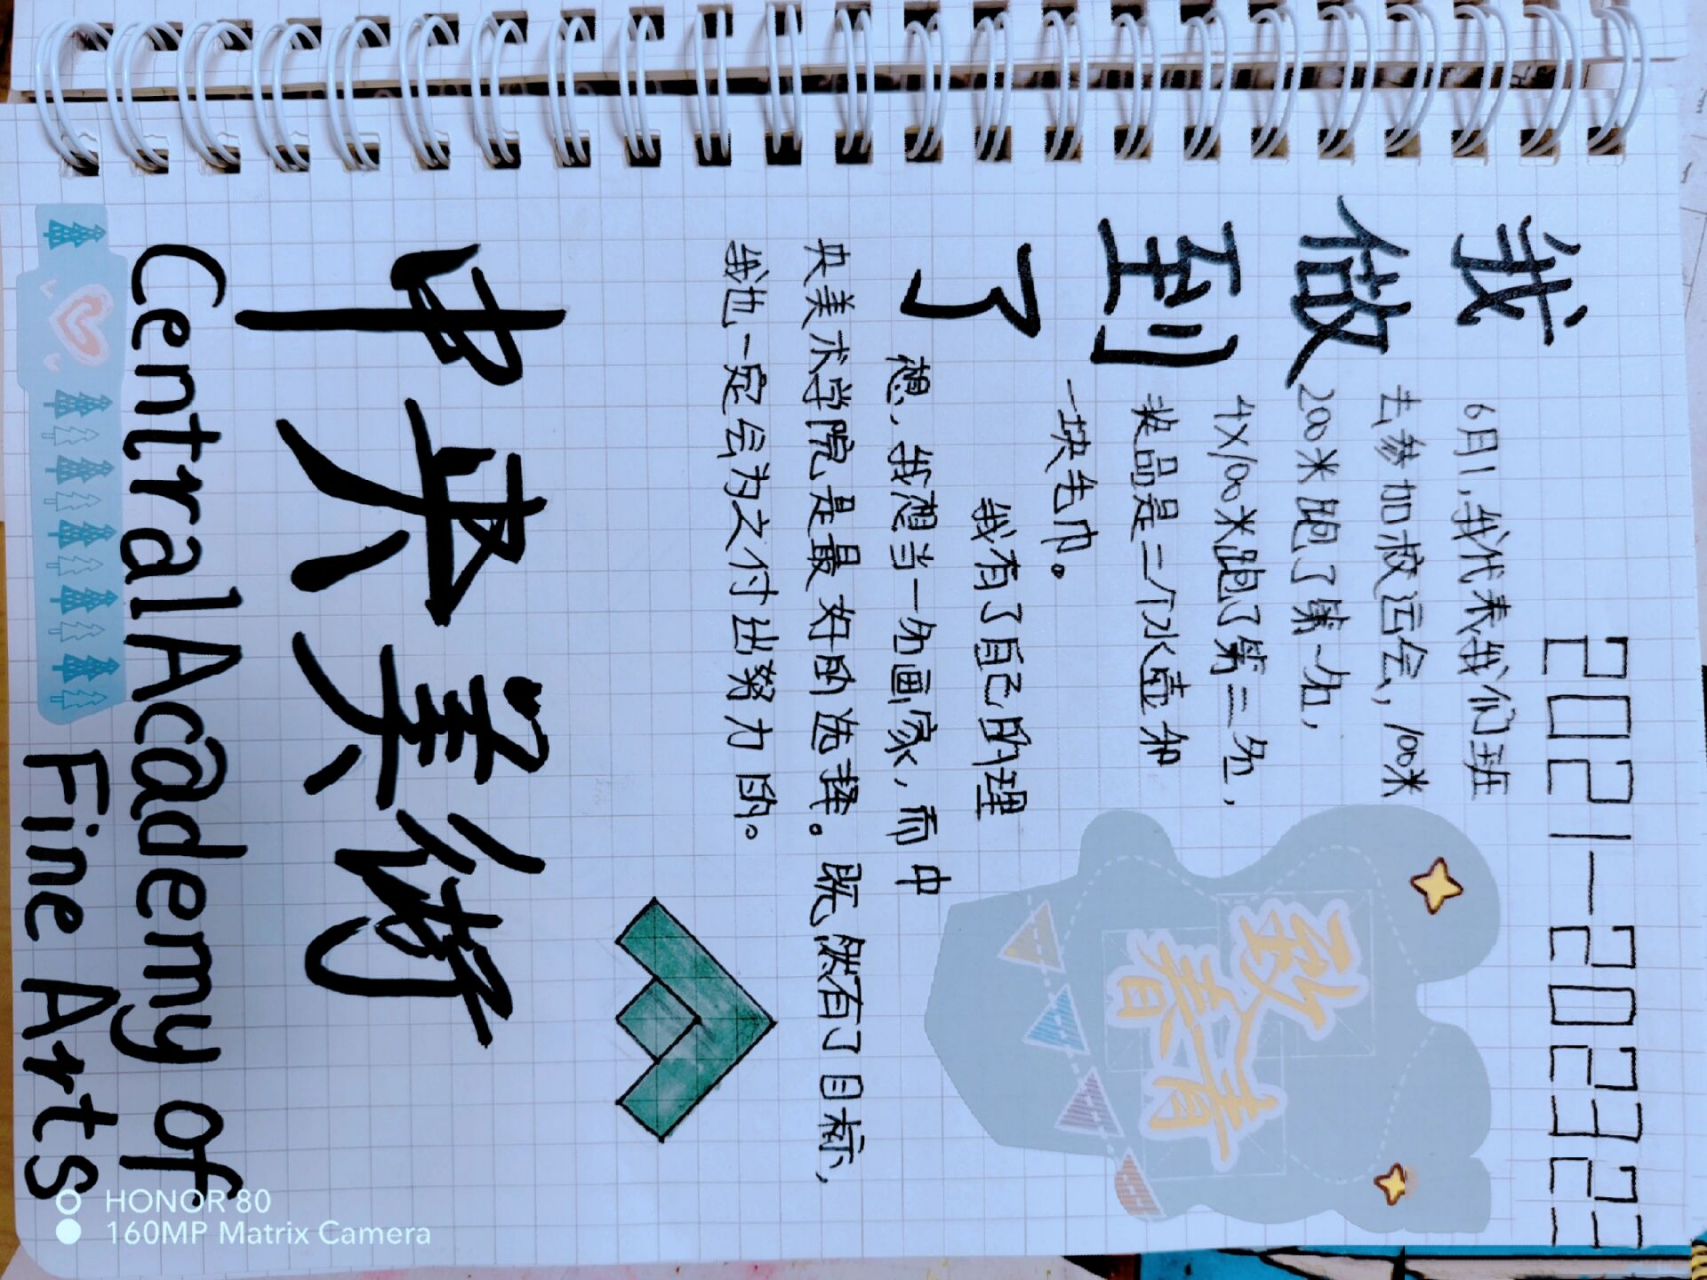 2021—202322
我做到了
6月1,我代表我们班
去参加校运会,100米
200米跑了第一名,
4X100米跑了第二名,
奖品是二个水壶和
一块毛巾。
致青春
我有了自己的理
想,我想当一名画家,而中
央美术学院是最好的选择。既然有了目标,
我也一定会为之付出努力的。
中央美術
Central Academy of
Fine Arts
HONOR 80
160MP Matrix Camera